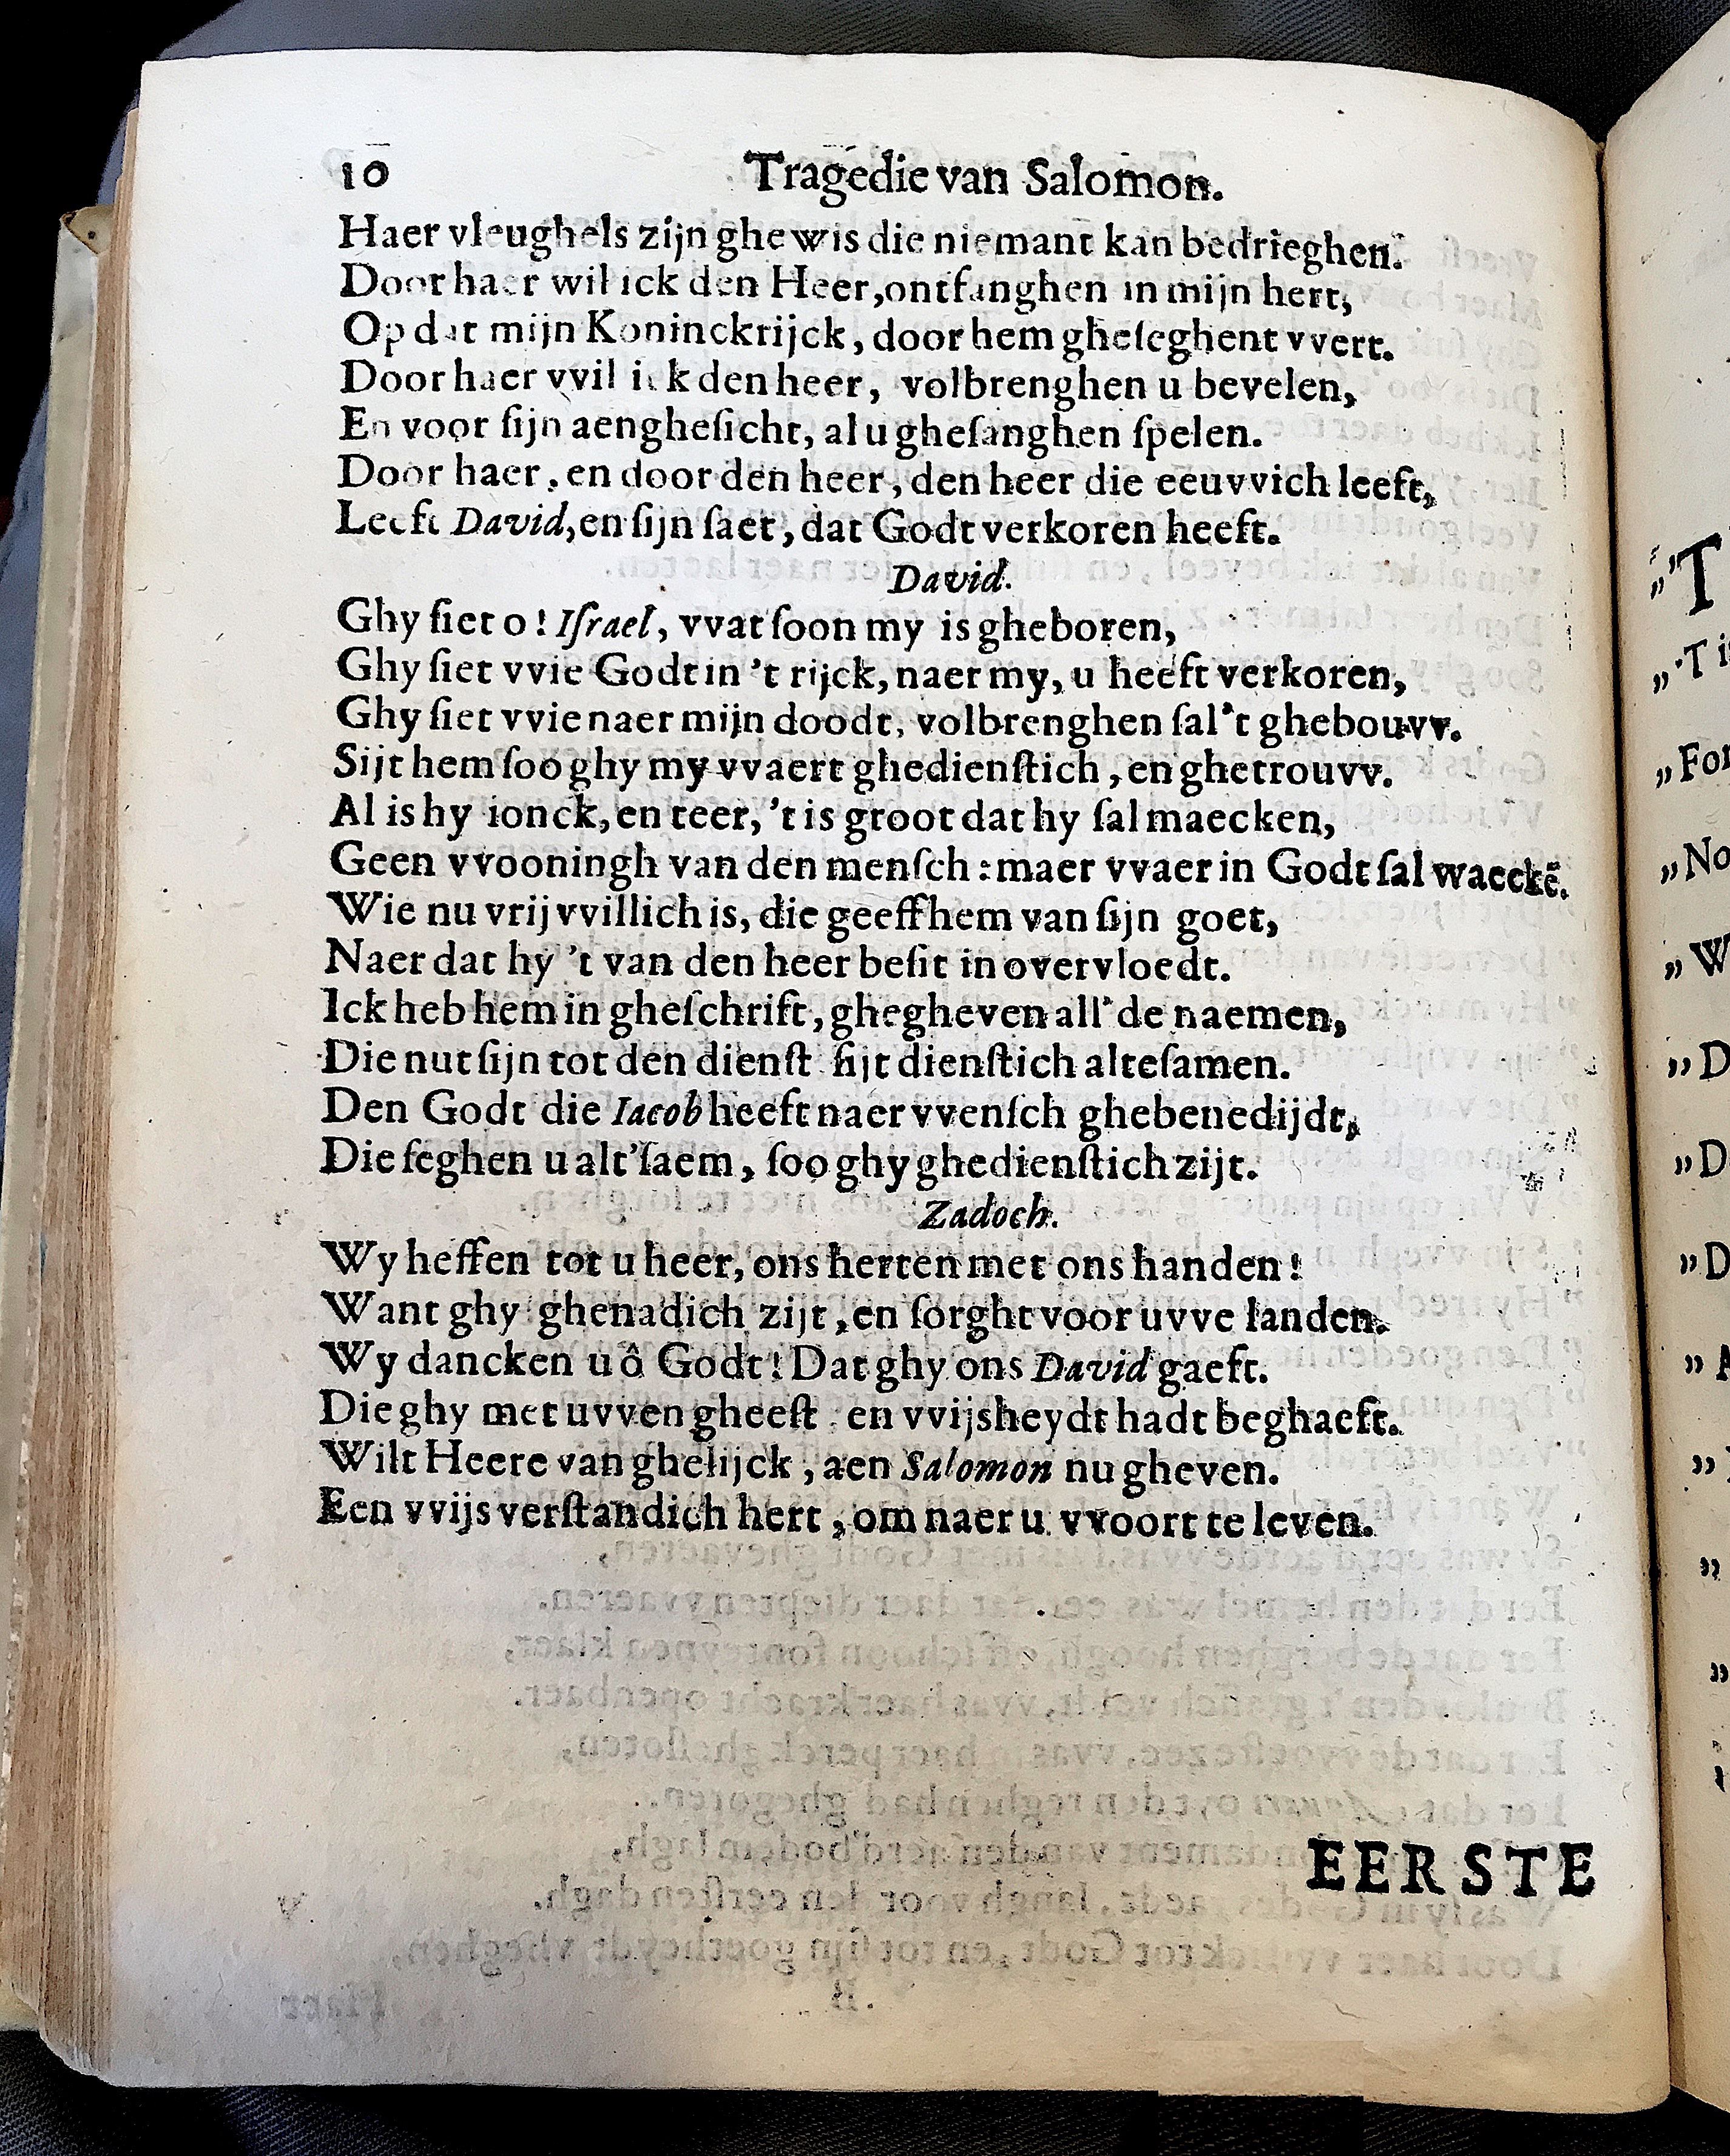 10 Tragedie van Salomon.
Haer vleughels zijn ghewis die niemant kan bedrieghen.
Door haer wil ick den Heer, ontfanghen in mijn hert,
Op dat mijn Koninckrijck, door hem gheſeghent vvert.
Door haer vvil ick den heer, volbrenghen u bevelen,
En voor ſijn aengheſicht, al u gheſanghen ſpelen.
Door haer, en door den heer, den heer die eeuvvich leeft,
Leeft David, en ſijn ſaet, dat Godt verkoren heeft.
David.
Ghy ſiet o! Iſrael, vvat ſoon my is gheboren,
Ghy ſiet vvie Godt in 't rijck, naer my, u heeft verkoren,
Ghy ſiet vvie naer mijn doodt, volbrenghen ſal't ghebouvv.
Sijt hem ſoo ghy my vvaert ghedienſtich, en ghetrouvv.
Al is hy ionck, en teer, 't is groot dat hy ſal maecken,
Geen vvooningh van den menſch: maer vvaer in Godt ſal waeckẽ.
Wie nu vrij vvillich is, die geeff hem van ſijn goet,
Naer dat hy 't van den heer beſit in overvloedt.
Ick heb hem in gheſchrift, ghegheven all' de naemen,
Die nut ſijn tot den dienſt ſijt dienſtich alteſamen.
Den Godt die Iacob heeft naer vvenſch ghebenedijdt,
Die ſeghen u alt'ſaem, ſoo ghy ghedienſtich zijt.
Zadoch.
Wy heffen tot u heer, ons herten met ons handen!
Want ghy ghenadich zijt, en ſorght voor uvve landen.
Wy dancken u ô Godt! Dat ghy ons David gaeft.
Die ghy met uvven gheeſt en vvijsheydt hadt beghaeft.
Wilt Heere van ghelijck, aen Salomon nu gheven.
Een vvijs verſtandich hert, om naer u vvoort te leven.
EERSTE
„'T
„'T i
„For
„No
„W
„D
„D
„D